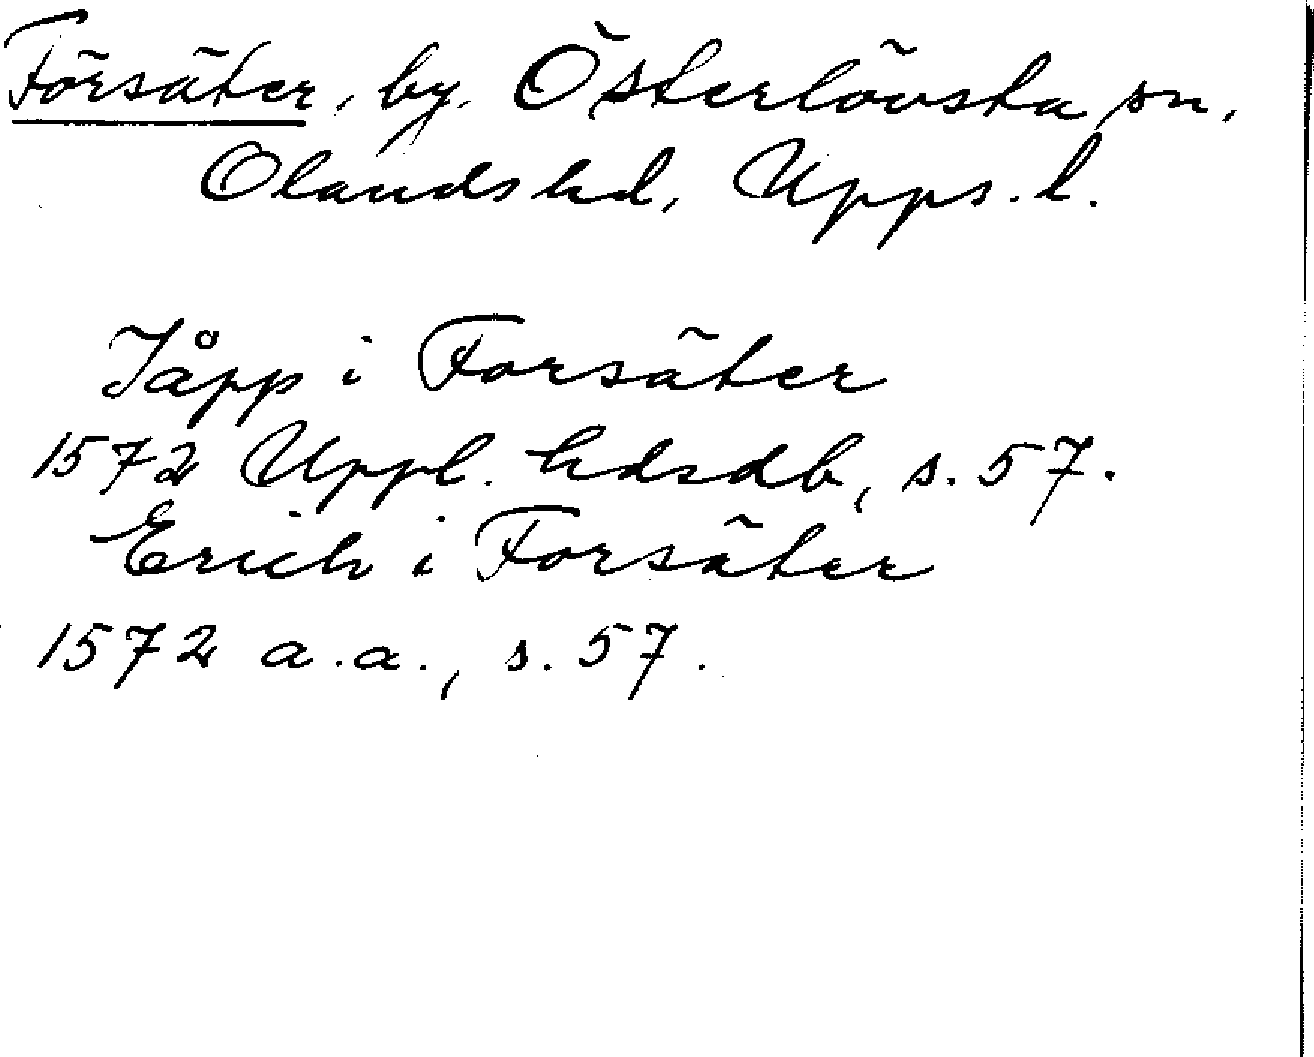 Försäter, by, Österlövsta sn,
Olands hd, Upps. l.
Jåpp i Forsäter
1572 Uppl. hdsdb, s. 57.
Erich i Forsäter
1572 a.a., s. 57.